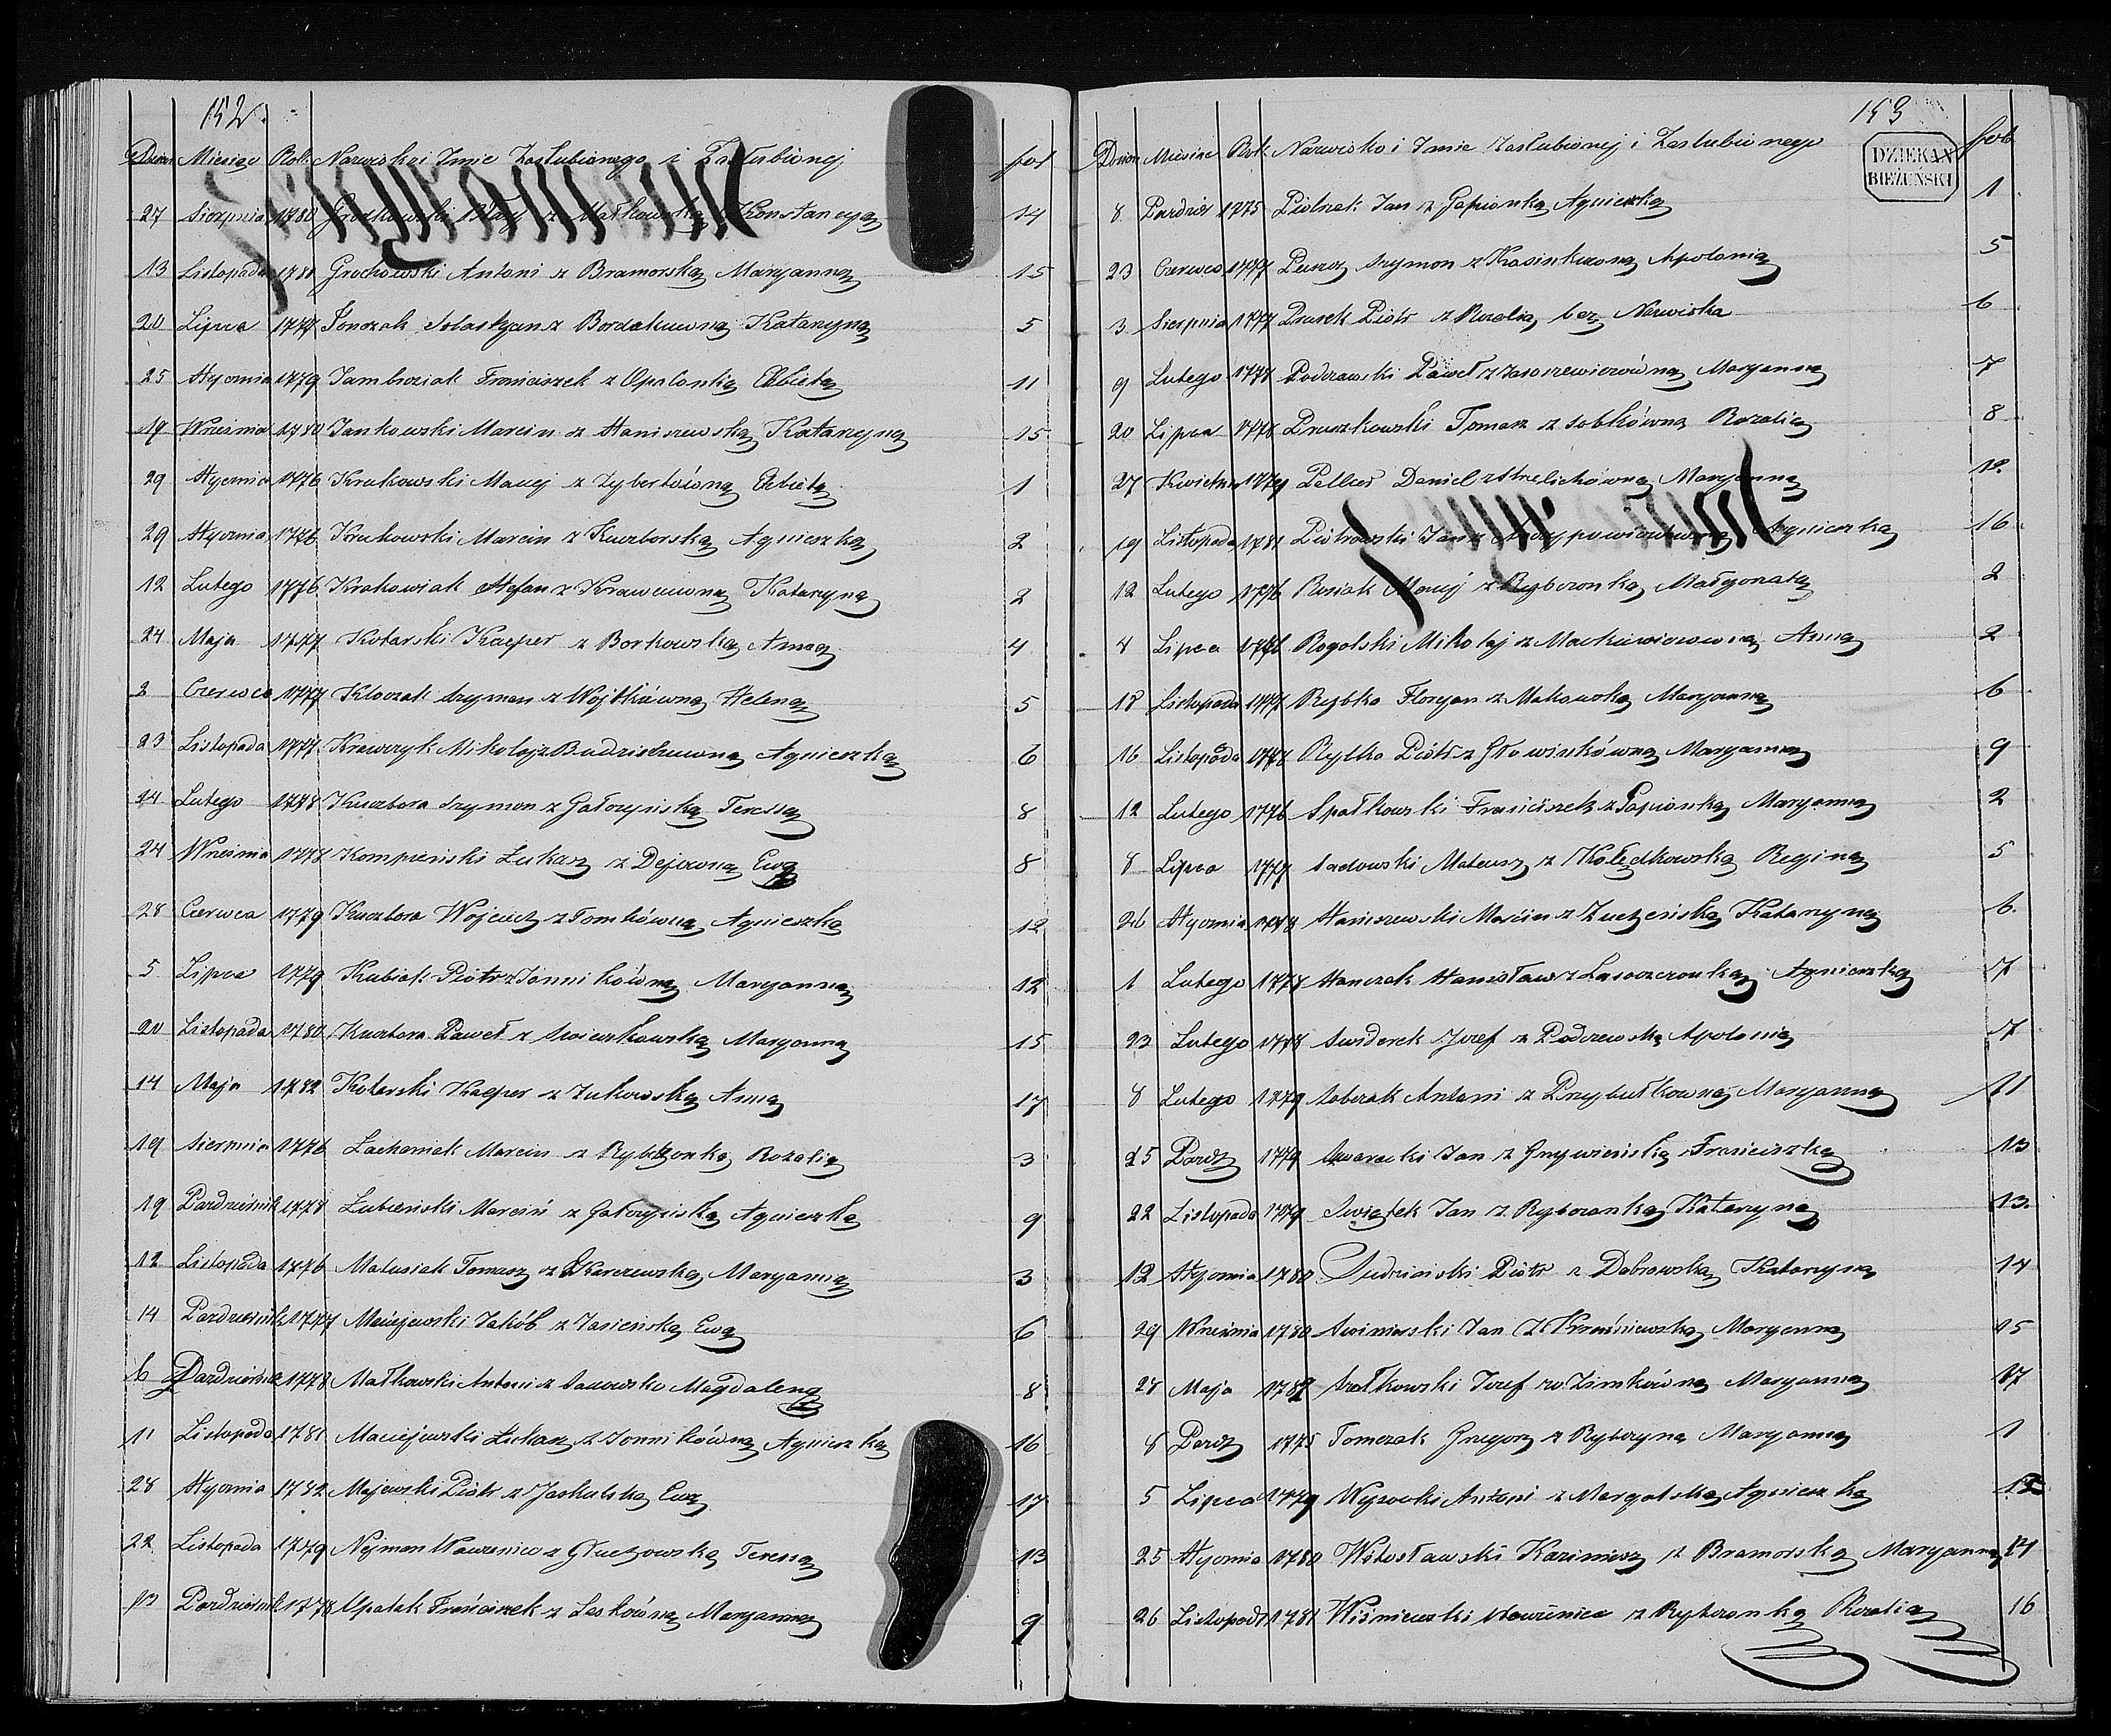 152.
Dzień Miesiąc Rok Nazwisko i Imie Zaślubionego i Zaślubionej fol
27 Sierpnia 1780 Grochowski Błażej z Małkowską Konstancyą 14
13 Listopada 1781 Grochowski Antoni z Bramorską Maryanną 15
20 Lipca 1777 Jonczak Sobastyan z Bordakuwną Katarzyną 5
25 Stycznia 1779 Jambroziak Franciszek z Opalonką Elzbietą 11
19 Wrzesnia 1780 Jankowski Marcin z Staniszewską Katarzyną 15
29 Stycznia 1776 Krukowski Maciej z Zybertówną Elzbietą 1
29 Stycznia 1776 Krukowski Marcin z Kuczborską Agnieszką 2
12 Lutego 1776 Krakowiak Stefan z Krawcuwną Katarzyną 2
24 Maja 1777 Kotarski Kacper z Borkowską Anną 4
2 Czerwca 1777 Kloczak Szymon z Wójtkówną Heleną 5
23 Listopada 1777 Krawczyk Mikołaj z Budziskuwną Agnieszką 6
24 Lutego 1778 Kuczbora Szymon z Gałczyńską Teressą 8
24 Wrzesnia 1778 Kompieński Łukasz z Dejowną Ewą 8
28 Czerwca 1779 Kuczbora Wojciech z Tomkówną Agnieszką 12
5 Lipca 1779 Kubiak Piotr z Jonnikówną Maryanną 12
20 Listopada 1780 Kuczbora Paweł z Swieczkowską Maryanną 15
14 Maja 1782 Kotarski Kacper z Zukowską Anną 17
19 Sierpnia 1776 Lachaniak Marcin z Rybczonką Rozalią 3
19 Pazdziernik 1778 Łubieński Marcin z Gałczyńską Agnieszką 9
12 Listopada 1776 Matusiak Tomasz z Skarczewską Maryanną 3
14 Pazdziernik 1777 Maciejewski Jakób z Jasieńską Ewą 6
6 Pazdziernik 1778 Małkowski Antoni z Sadowsko Magdaleną 8
11 Listopada 1781 Maciejewski Łukasz z Jonnikówną Agnieszką 16
28 Stycznia 1782 Majewski Piotr z Jaskulską Ewą 17
22 Listopada 1779 Nejman Wawrzeniec z Głuchowską Teressą 13
13 Pazdziernik 1778 Opalak Franciszek z Leskówną Maryanną 9
153
DZIEKAN
BIEŻUŃSKI
Dzień Miesiąc Rok Nazwisko i Imie Zaslubionej i Zaslubionego fol
8 Pazdzier 1775 Piotrak Jan z Gapionką Agnieszką 1
23 Czerwca 1777 Szymon z Kosinkuwną Apolonią 5
3 Sierpnia 1777 Prusek Piotr z Rozalią bez Nazwiska 6
9 Lutego 1778 Podczaski Paweł z Maryanną 7
20 Lipca 1778 Pruszkowski Tomasz z Sobkówną Rozalią 8
27 Kwietnia 1779 Daniel z Strelichówną Maryanną 12
19 Listopada 1781 Piotrowski Jan z Agnieszką 16
12 Lutego 1776 Rosiak Maciej z Rybczonką Małgorzatą 2
8 Lipca 1776 Rogolski Mikołaj z Mackiewiczowną Anną 2
18 Listopada 1777 Rybka Floryan z Makowską Maryanną 6
16 Listopada 1778 Rytka Piotr z Głowinkówną Maryanną 9
12 Lutego 1776 Spałkowski Franciszek z Papionką Maryanną 2
8 Lipca 1777 Sadowski Mateusz z Kolędkowską Reginą 5
26 Stycznia 1778 Staniszewski Marcin z Katarzyną 6.
1 Lutego 1778 Stanczak Stanisław z Agnieszką 7
23 Lutego 1778 Swiderek Jozef z Podczewską Apolonią 7
8 Lutego 1779 Sobczak Antoni z Przybułkowną Maryanną 11
25 Pazdz 1779 Swaracki Jan z Grzywieńską Franciszką 13
22 Listopada 1779 Swiątek Jan z Rybczonką Katarzyną 13.
12 Stycznia 1780 Sudzinski Piotr z Dobrowską Katarzyną 14
29 Wrzesnia 1780 Swiniarski Jan z Krzesniewską Maryanną 15
28 Maja 1782 Szałkowski Jozef z Zimkówną Maryanną 17
8 Pazdz 1775 Tomczak Grzegorz z Rybczyną Maryanną 1
5 Lipca 1779 Wysocki Antoni z Margolską Agnieszką 12
25 Stycznia 1780 Witosławski Kazimierz z Bramorską Maryanną 14
26 Listopada 1781 Wiśniewski Wawrzeniec z Rybczonką Rozalią 16